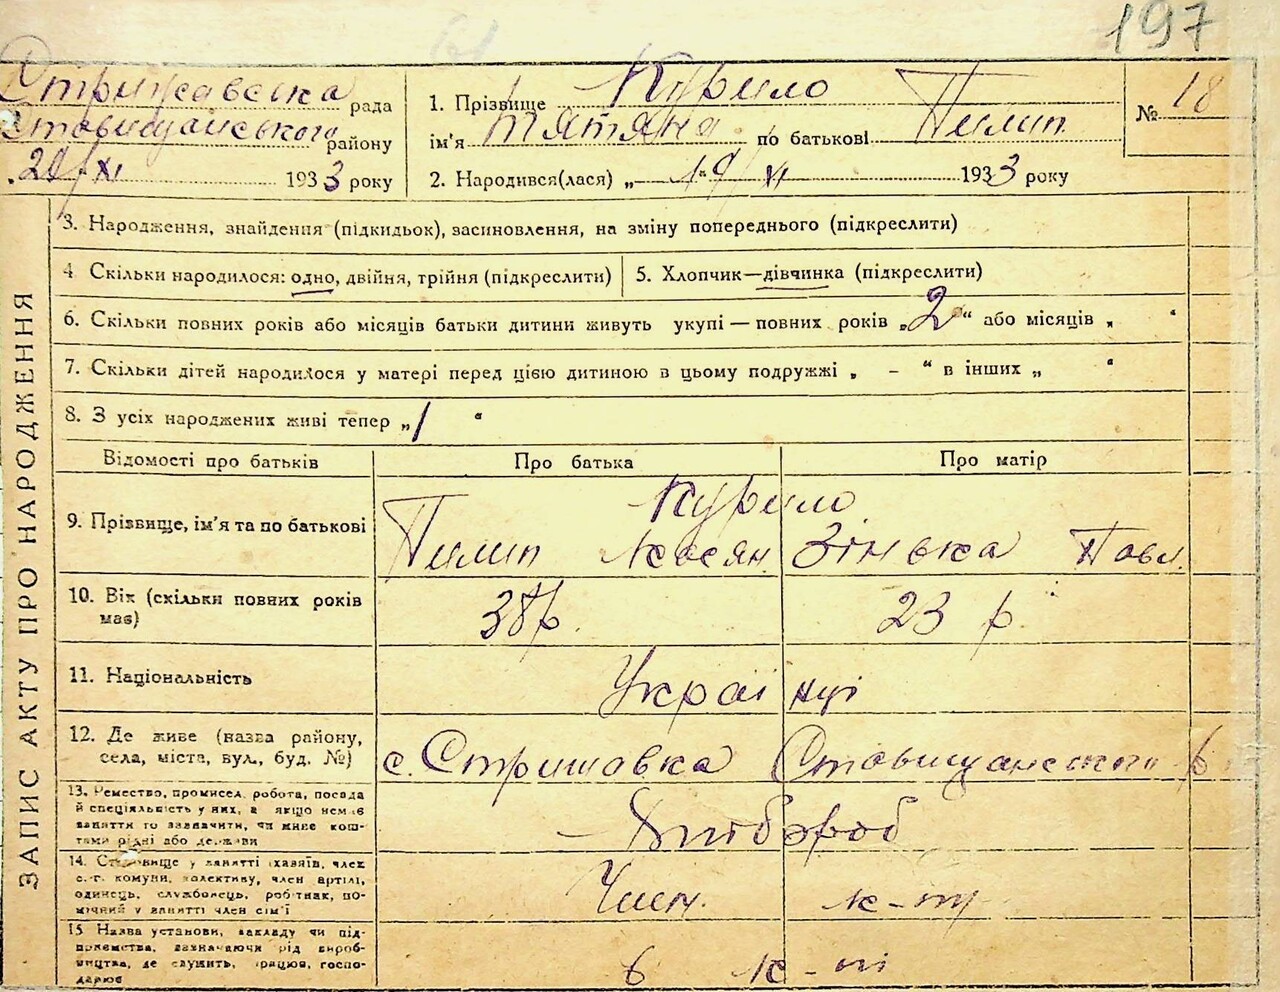 197
Стрижавська рада
Ставищанського району
20/XI 1933 року
1. Прізвище Курило
ім'я Тятяна по батькові Пилип.
№ 18
2. Народився(лася) „ 19/XI 1933 року
3. Народження, знайдення (підкидьок), засиновлення, на зміну попереднього (підкреслити)
4 Скільки народилося: одно, двійня, трійня (підкреслити)
5. Хлопчик—дівчинка (підкреслити)
6. Скільки повних років або місяців батьки дитини живуть укупі — повних років „2“ або місяців „ “
7. Скільки дітей народилося у матері перед цією дитиною в цьому подружжі „ - “ в інших „ “
8. З усіх народжених живі тепер „1 “
Відомості про батьків Про батька Про матір
9. Прізвище, ім'я та по батькові
Курило
Пилип Касян. Зінька Павл.
10. Вік (скільки повних років має)
38 р. 23 р.
11. Національність
Українці
12. Де живе (назва району,
села, міста, вул., буд. №)
с. Стрижавка Ставищанського р
13. Ремество, промисел, робота, посада
й спеціяльність у них, а якщо нема
заняття то зазначити, чи живе кош-
тами рідні або держави
- Хлібороб
14. Становище у занятті (хазяїв, член
с.-г. комуни, колективу, член артілі,
одинець, службовець, робітник, по-
мічний у занятті член сім'ї
Член. к-ту
15 Назва установи, закладу чи під-
приємства, зазначаючи рід вироб-
ництва, де служить, працює, госпо-
дарює
в к-ті
ЗАПИС АКТУ ПРО НАРОДЖЕННЯ